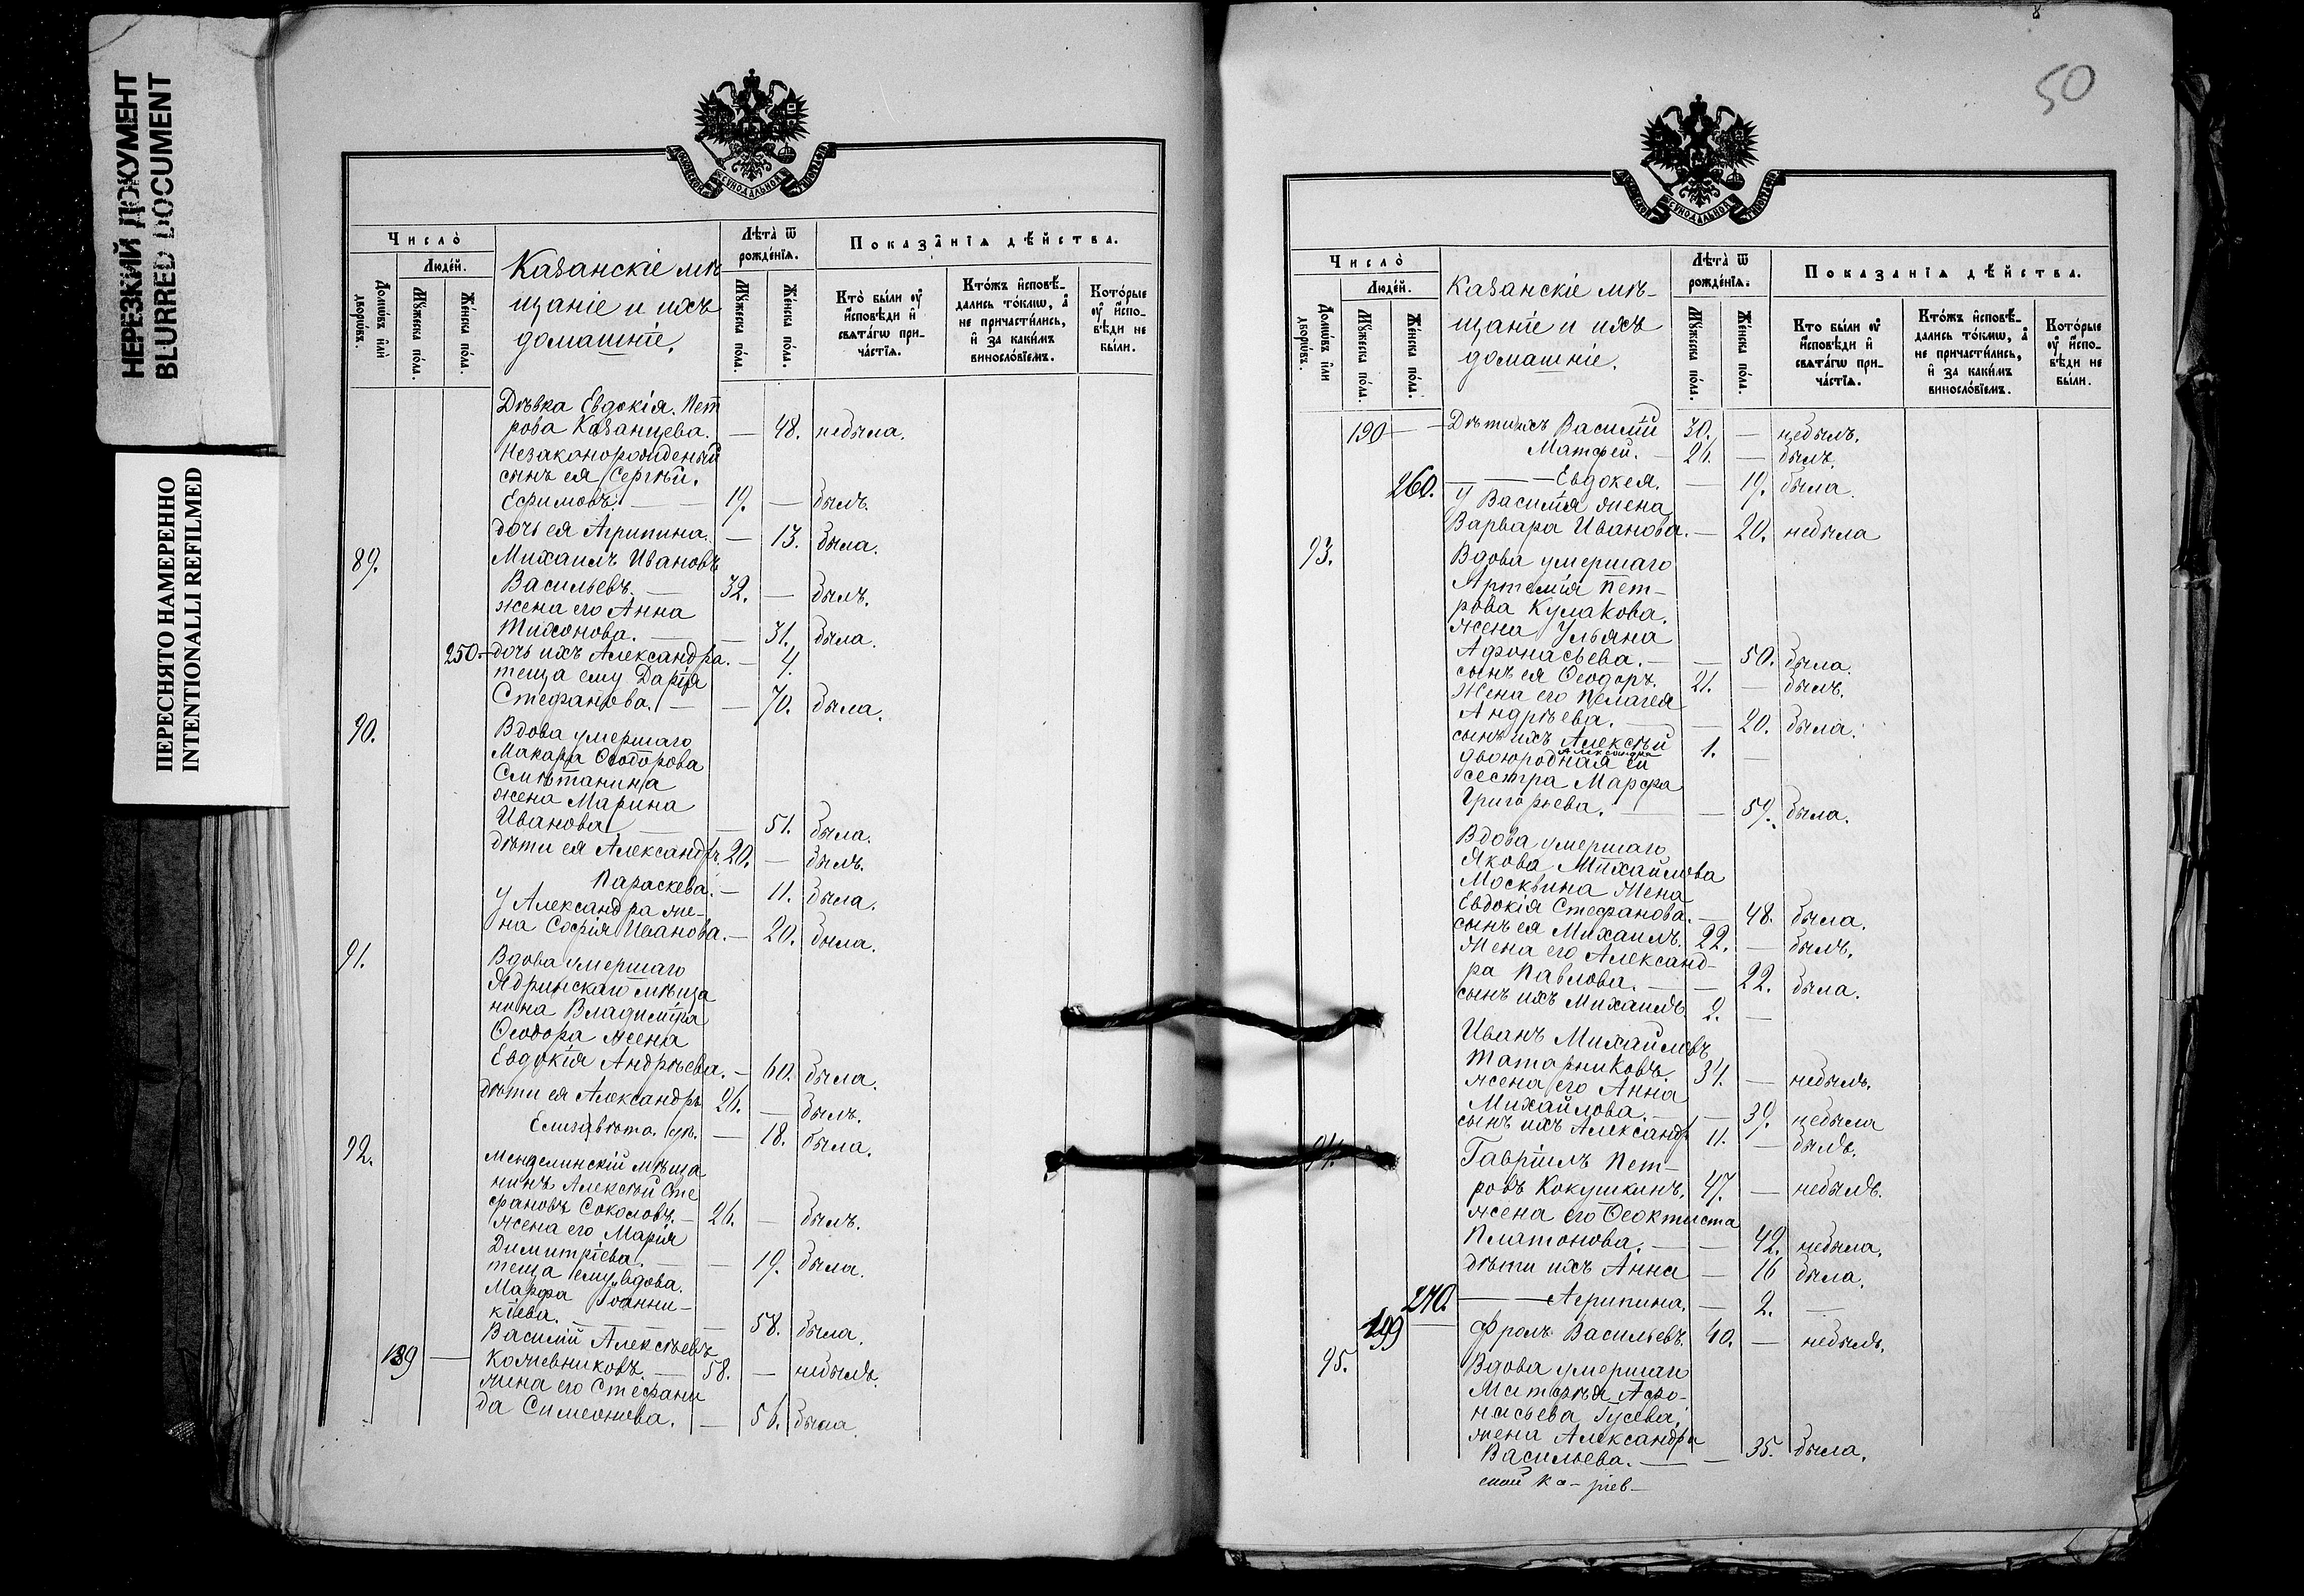 НЕРЕЗКИЙ ДОКУМЕНТ
BLURRED DOCUMENT
ПЕРЕСНЯТО НАМЕРЕННО
INTENTIONALLI REFILMED
Число̀
Лѣта̀ ѿ рожде́нїѧ.
Показа̑нїѧ дѣ́йства.
Людей.
Домѡ́въ и҆лѝ дворѡ́въ.
Мꙋ́жеска по́ла.
Же́нска по́ла.
Казанскіе мѣ
щаніе и ихъ
домашніе.
Мꙋ́жеска по́ла.
Же́нска по́ла.
Кто̀ бы́ли оу҆ и҆сповѣди и҆ свѧта́гѡ прича́стїѧ.
Кто́жъ и҆сповѣ́дались то́кмѡ, а҆ не причасти́лись, и҆ за каки́мъ винослові́емъ.
Кото́рые оу҆ и҆сповѣди не бы́ли.
Дѣвка Евдокія. Пет
рова Казанцева. — 48. небыла.
Незаконорожденый
сынъ ея Сергѣй.
Ефимовъ. — 19. — былъ.
дочь ея Агрипина. — 13. была.
89. Михаилъ Ивановъ
Васильевъ. — 32. — былъ.
жена его Анна
Тихонова. — — 31. была.
250. — дочь ихъ Александра. — 4.
теща ему Дарія
Стефанова. — — 70. была.
90. Вдова умершаго
Макара Ѳеодорова
Смѣтанина
жена Марина
Иванова — — 51. была.
дѣти ея Александръ. 20. — былъ.
Параскева. — 11. была.
У Александра же-
на Софія Иванова. — 20. была.
91. Вдова умершаго
Ядринскаго мѣща
нина Владиміра
Ѳеодора жена
Евдокія Андрѣева. — 60. была.
дѣти ея Александръ 26. — былъ.
Елизавета. — 18. была.
92. Мензелинскій мѣща
нинъ Алексѣй Сте
фановъ Соколовъ. — 26. — былъ.
жена его Марія
Димитріева. — — 19. была.
теща ему вдова.
Марфа Іоанни-
кіева. — — 58. была.
Василій Алексѣевъ
189 — Кожевниковъ. — 58. — небылъ.
жена его Стефани
да Симеонова. — 56. была.
50
Число̀
Лѣта̀ ѿ рожде́нїѧ.
Показанїѧ дѣ́йства.
Людей.
Домѡ́въ и҆лѝ дворѡ́въ.
Мꙋ́жеска по́ла.
Же́нска по́ла.
Казанскіе мѣ-
щаніе и ихъ
домашніе.
Мꙋ́жеска по́ла.
Же́нска по́ла.
Кто бы́ли оу҆ и҆сповѣди и҆ свѧта́гѡ прича́стїѧ.
Кто́жъ и҆сповѣ́дались то́кмѡ, а҆ не причасти́лись, и҆ за каки́мъ винослові́емъ.
Кото́рые оу҆ и҆сповѣди не бы́ли.
190 — — Дѣти ихъ Василій 30. — небылъ.
Матфей. — 26. — былъ.
260. — — Евдокея. — 19. была.
У Василія жена
Варвара Иванова. — 20. небыла
93. Вдова умершаго
Артемія Пет-
рова Кулакова.
жена Ульяна
Афонасьева. — — 50. была.
сынъ ея Ѳеодоръ. 21. — былъ.
Жена его Пелагея
Андрѣева. — — 20. была.
сынъ ихъ Алексѣй 1. —
двоюродная ей
сестра Марфа
Григорьева. — — 59. была.
Вдова умершаго
Якова Михайлова
Москвина жена
Евдокія Стефанова. — 48. была.
сынъ ея Михаилъ. 22. — былъ.
Жена его Александ-
ра Павлова. — — 22. была.
сынъ ихъ Михаилъ 2. —
Иванъ Михайловъ
Татарниковъ. 34. — небылъ.
жена его Анна
Михайлова. — — 39. небыла
сынъ ихъ Александръ 11. — былъ.
94. Гавріилъ Пет-
ровъ Кокушкинъ. 47. — небылъ.
жена его Ѳеоктиста
Платонова. — — 42. небыла.
дѣти ихъ Анна — 16 была.
270. — — Агрипина. — 2. —
199 — Фролъ Васильевъ. 40. — небылъ.
95. Вдова умершаго
Матфѣя Афо-
насьева Гусева.
жена Александра
Васильева. — — 35. была.